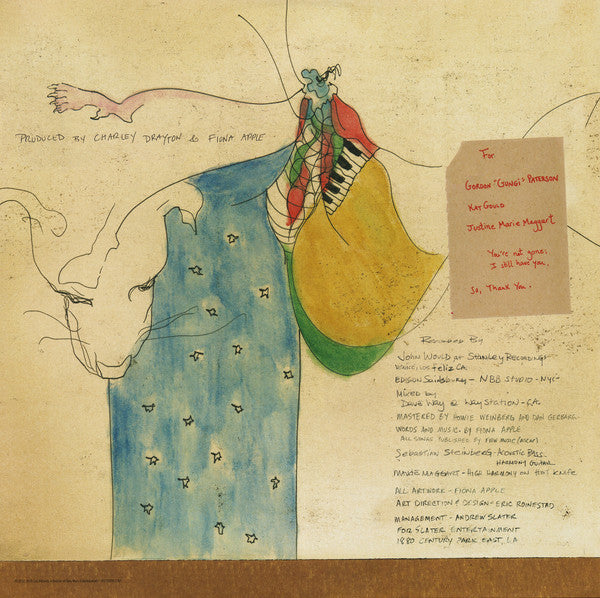 PRODUCED BY CHARLEY DRAYTON & FIONA APPLE
For
GORDON "GUNGI" PATERSON
KAT GOULD
Justine Marie Maggart
You're not gone,
I still have you,
So, Thank You.
Recorded By
JOHN WOULD AT STANLEY RECORDING
VENICE/LOS feliz CA
EDISON Sainsbury - NBB STUDIO - NYC
Mixed by
Dave Way @ WAYSTATION - CA
MASTERED BY HOWIE WEINBERG AND DAN GERBARG
WORDS AND MUSIC BY FIONA APPLE
ALL SONGS PUBLISHED BY FHW MUSIC (ASCAP)
Sebastian Steinberg - Acoustic Bass
HARMONY GUITAR
MAUDE MAGGART - HIGH HARMONY ON HOT KNIFE
ALL ARTWORK - FIONA APPLE
ART DIRECTION & DESIGN - ERIC ROINESTAD
MANAGEMENT - ANDREW SLATER
FOR SLATER ENTERTAINMENT
1880 CENTURY PARK EAST, LA